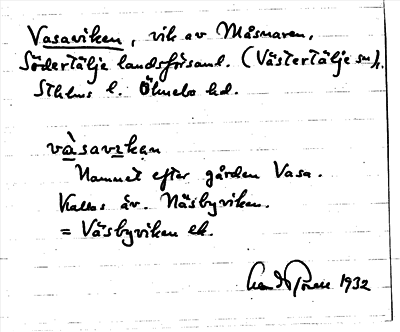 Vasaviken, vik av Måsnaren,
Södertälje landsförsaml. (Västertälje sn),
Sthlms l. Öknebo hd.
vàsavikən
Namnet efter gården Vasa.
Kallas äv. Näsbyviken.
= Väsbyviken ek.
1932